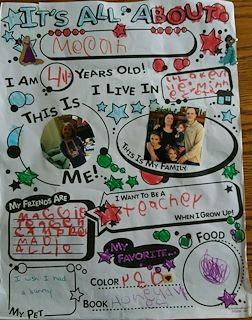 IT'S ALL ABOUT
Megan
I AM 4½ YEARS OLD!
I LIVE IN
THIS IS
ME!
THIS IS MY FAMILY
MY FRIENDS ARE
MAGGIE
MADI
ALLIE
I WANT TO BE A
teacher
WHEN I GROW UP!
MY FAVORITE...
FOOD
COLOR red
BOOK
I wish I had
a bunny
MY PET